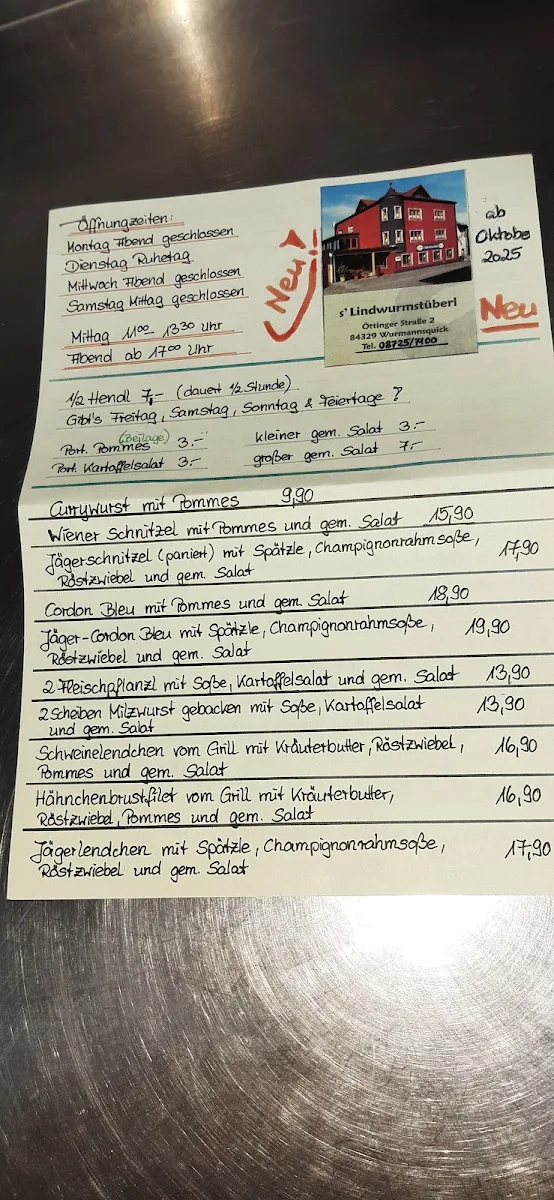 Öffnungzeiten:
Montag Abend geschlossen
Dienstag Ruhetag
Mittwoch Abend geschlossen
Samstag Mittag geschlossen
Mittag 11⁰⁰ - 13³⁰ Uhr
Abend ab 17⁰⁰ Uhr
Neu!
s' Lindwurmstüberl
Öttinger Straße 2
84329 Wurmannsquick
Tel. 08725/7400
ab
Oktobe
2025
Neu
1/2 Hendl 7,- (dauert 1/2 Stunde)
Gibt's Freitag, Samstag, Sonntag & Feiertage ?
(Beilage)
Port. Pommes 3.- kleiner gem. Salat 3.-
Port. Kartoffelsalat 3.- großer gem. Salat 7.-
Currywurst mit Pommes 9,90
Wiener Schnitzel mit Pommes und gem. Salat 15,90
Jägerschnitzel (paniert) mit Spätzle, Champignonrahmsoße, 17,90
Röstzwiebel und gem. Salat
Cordon Bleu mit Pommes und gem. Salat 18,90
Jäger-Cordon Bleu mit Spätzle, Champignonrahmsoße, 19,90
Röstzwiebel und gem. Salat
2 Fleischpflanzl mit Soße, Kartoffelsalat und gem. Salat 13,90
2 Scheiben Milzwurst gebacken mit Soße, Kartoffelsalat 13,90
und gem. Salat
Schweinelendchen vom Grill mit Kräuterbutter, Röstzwiebel, 16,90
Pommes und gem. Salat
Hähnchenbrustfilet vom Grill mit Kräuterbutter, 16,90
Röstzwiebel, Pommes und gem. Salat
Jägerlendchen mit Spätzle, Champignonrahmsoße, 17,90
Röstzwiebel und gem. Salat